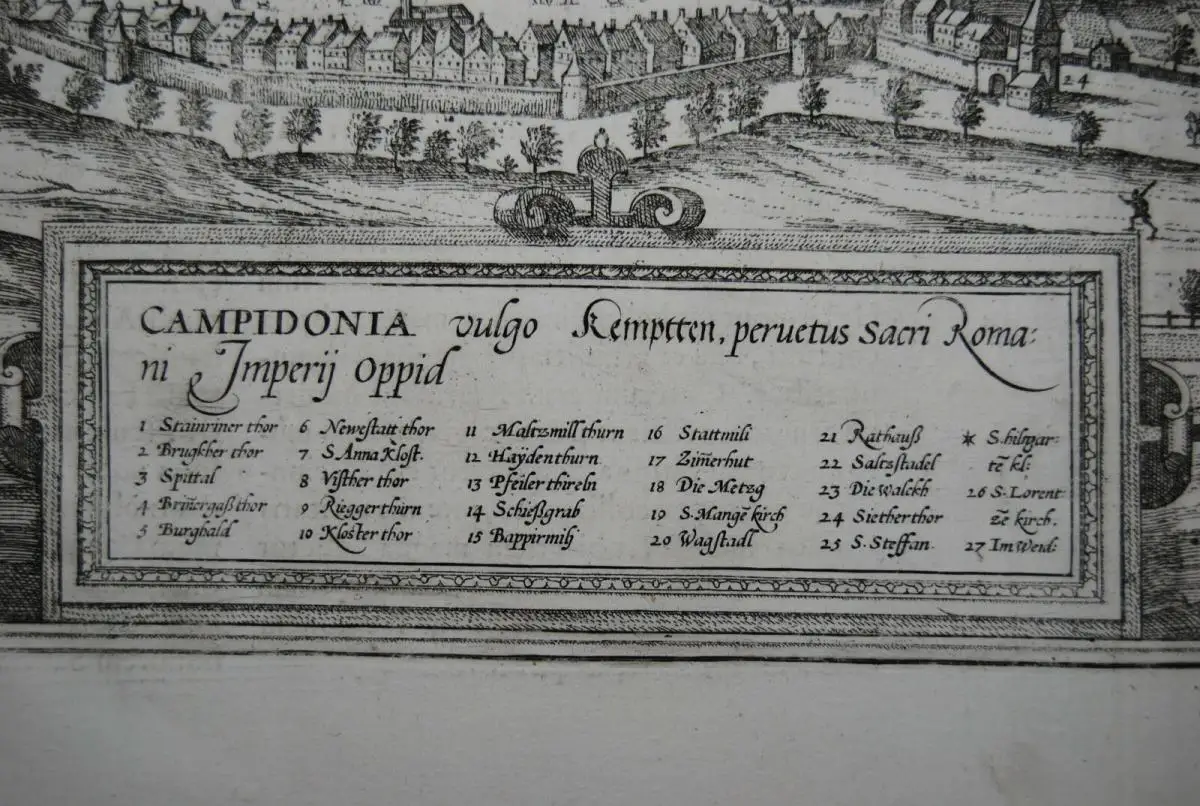 24
CAMPIDONIA vulgo Kemptten, peruetus Sacri Roma:
ni Imperij Oppid
1 Stainriner thor
2 Brugkher thor
3 Spittal
4 Brin̄ergaß thor
5 Burghald
6 Newestatt thor
7 S. Anna Klost.
8 Visther thor
9 Riegger thurn
10 Kloster thor
11 Maltzmill thurn
12 Haÿden thurn
13 Pfeiler thireln
14 Schießgrab
15 Bappirmilj
16 Stattmili
17 Zim̄erhut
18 Die Metzg
19 S. Mangē kirch
20 Wagstadl
21 Rathauß
22 Saltzstadel
23 Die walckh
24 Siether thor
25 S. Steffan.
* S. hiltgar:
tē kl:
26 S. Lorent
zē kirch.
27 Im Weid: